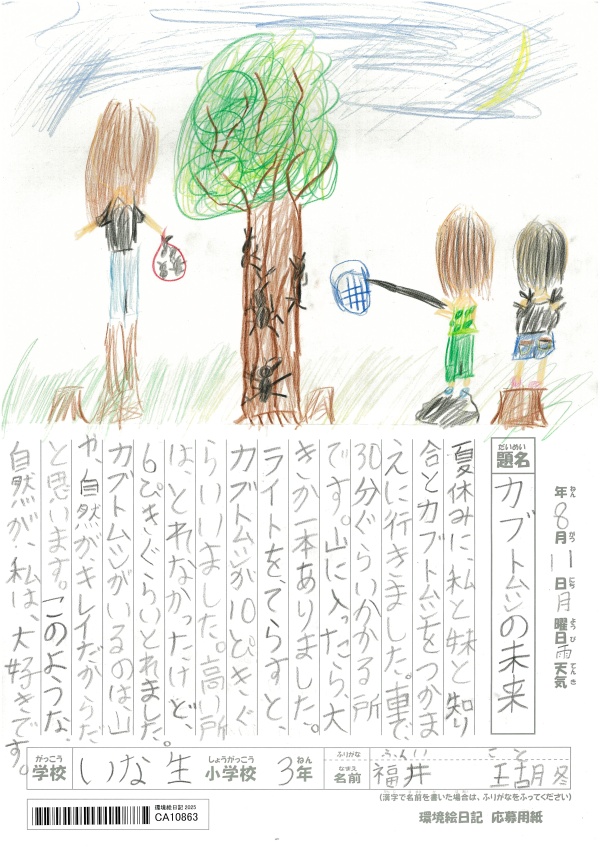 年ねん8月がつ11日にち月曜日ようび雨天気てんき
だいめい
題名 カブトムシの未来
夏休みに、私と妹と知り
合とカブトムシをつかま
えに行きました。車で、
30分ぐらいかかる所
です。山に入ったら、大
きが一本ありました。
ライトを、てらすと、
カブトムシが10ぴきぐ
らいいました。高い所
は、とれなかったけど、
6ぴきぐらいとれました。
カブトムシがいるのは山
や、自然がキレイだからだ
と思います。このような
自然が、私は、大好きです。
がっこう しょうがっこう ねん ふりがな ふくい こと
学校 いな生 小学校 3年 なまえ 名前 福井 瑚冬
(漢字で名前を書いた場合は、ふりがなをふってください)
環境絵日記 2025
CA10863
環境絵日記 応募用紙